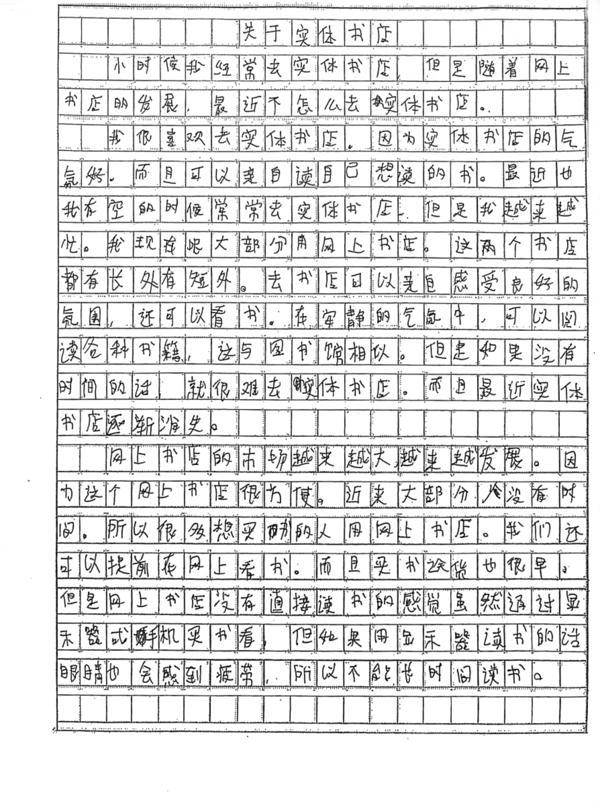 关于实体书店
小时候我经常去实体书店，但是随着网上
书店的发展，最近不怎么去实体书店。
我很喜欢去实体书店。因为实体书店的气
氛好。而且可以亲自读自己想读的书。最近也
我有空的时候常常去实体书店，但是我越来越
忙。我现在很大部分用网上书店。这两个书店
都有长外有短外。去书店可以亲自感受良好的
氛围，还可以看书。在安静的气氛中，可以阅
读各种书籍，这与图书馆相似。但是如果没有
时间的话，就很难去实体书店。而且最近实体
书店逐渐消失。
网上书店的市场越来越大，越来越发展。因
为这个网上书店很方便。近来大部分人没有时
间。所以很多想买的人用网上书店。我们还
可以提前在网上看书。而且买书送货也很早。
但是网上书店没有直接读书的感觉虽然通过显
示器或手机买书看，但如果用显示器读书的话
眼睛也会感到疲劳，所以不能长时间读书。